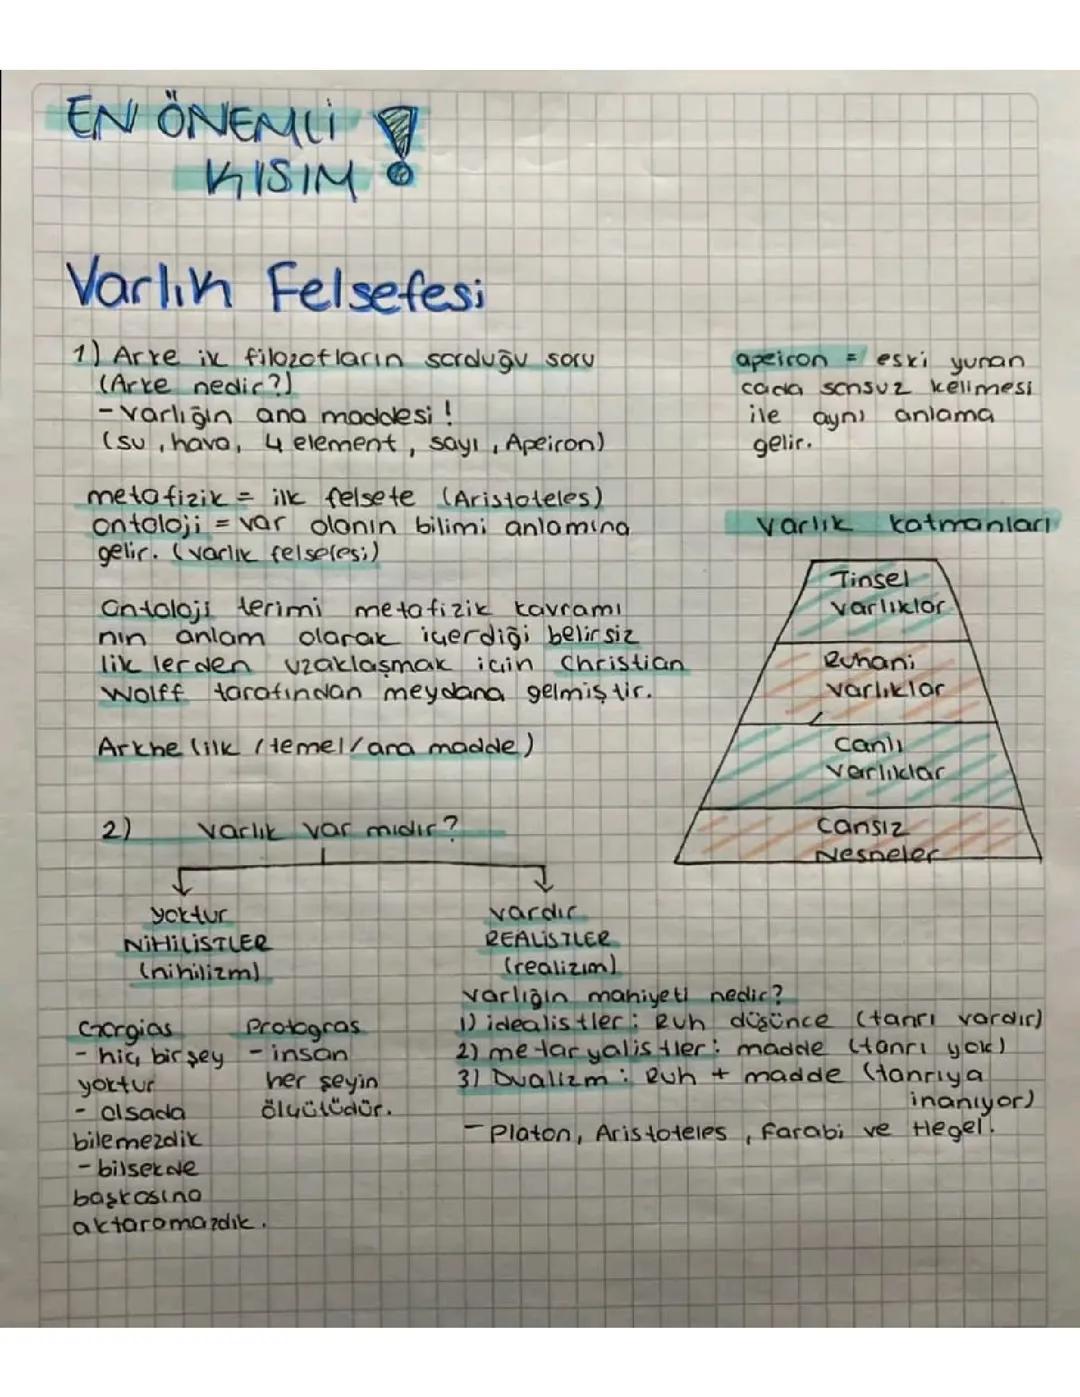 EN ÖNEMLİ
KISIM !
Varlık Felsefesi
1) Arke ik filozofların sorduğu soru
(Arke nedir?)
- varlığın ana maddesi !
(su, hava, 4 element, sayı, Apeiron)
apeiron = eski yunan
cada sonsuz kelimesi
ile aynı anlama
gelir.
metafizik = ilk felsefe (Aristoteles)
ontoloji = var olanın bilimi anlamına
gelir. (varlık felsefesi)
Ontoloji terimi metafizik kavramı
nın anlam olarak içerdiği belirsiz
lik lerden uzaklaşmak için Christian
Wolff tarafından meydana gelmiştir.
Arkhe (ilk /temel/ana madde)
varlık katmanları
Tinsel
varlıklar
Ruhani
varlıklar
Canlı
varlıklar
Cansız
Nesneler
2) Varlık var mıdır?
yoktur
NİHİLİSTLER
(nihilizm)
vardır
REALİSTLER
(realizım)
Gorgias
- hiç bir şey
yoktur
- olsada
bilemezdik
- bilsekde
başkasına
aktaramazdık.
Protogras
- insan
her şeyin
ölçütüdür.
varlığın mahiyeti nedir?
1) idealistler : Ruh düşünce (tanrı vardır)
2) metaryalistler : madde (tanrı yok)
3) Dualizm : Ruh + madde (tanrıya
inanıyor)
- Platon, Aristoteles, Farabi ve Hegel.